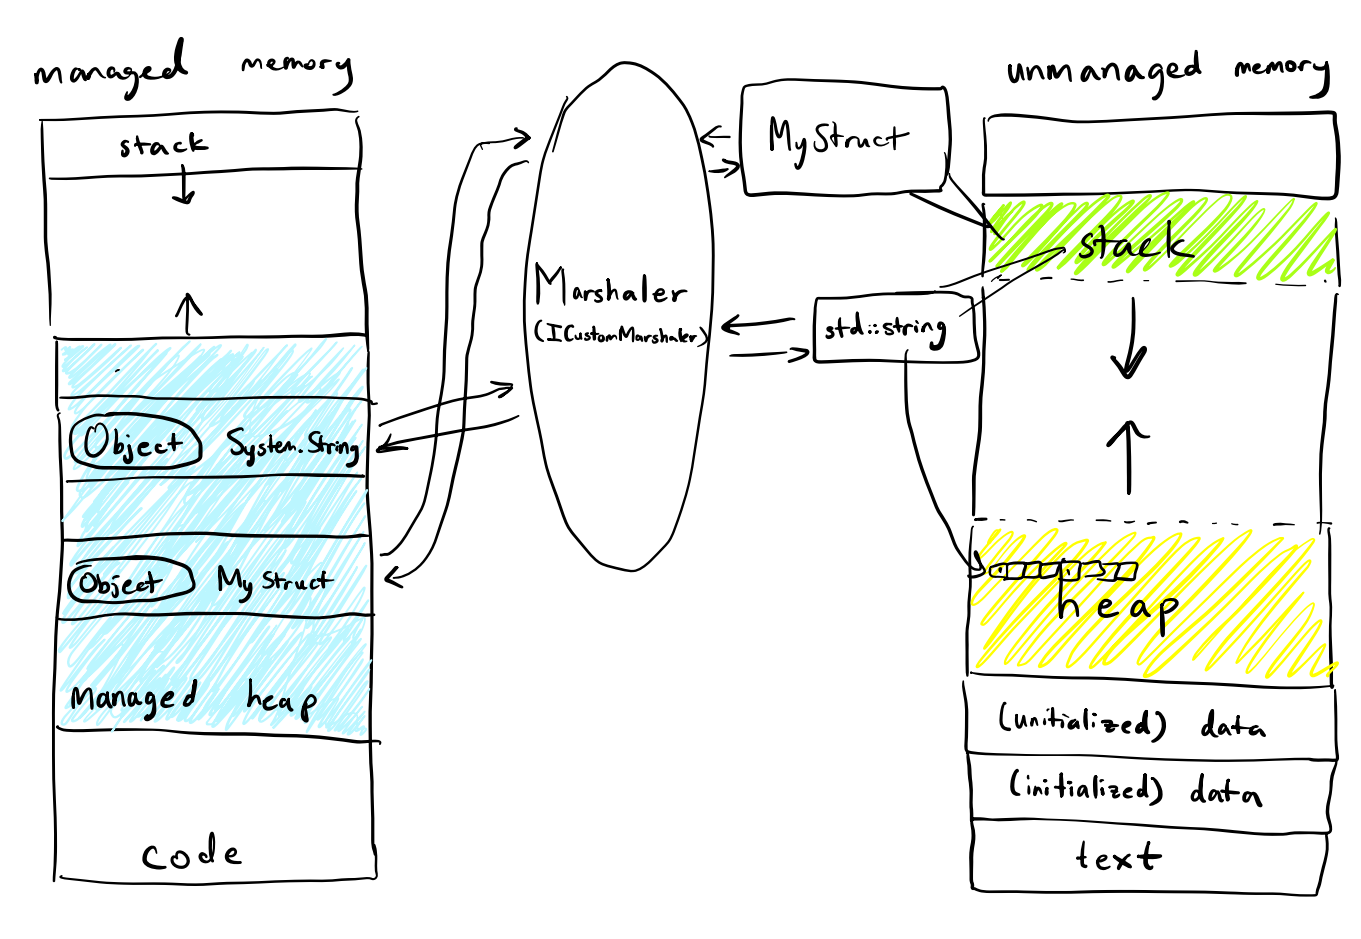 managed memory
stack
Object System.String
Object MyStruct
managed heap
code
Marshaler
(ICustomMarshaler)
MyStruct
std::string
unmanaged memory
stack
heap
(unitialized) data
(initialized) data
text